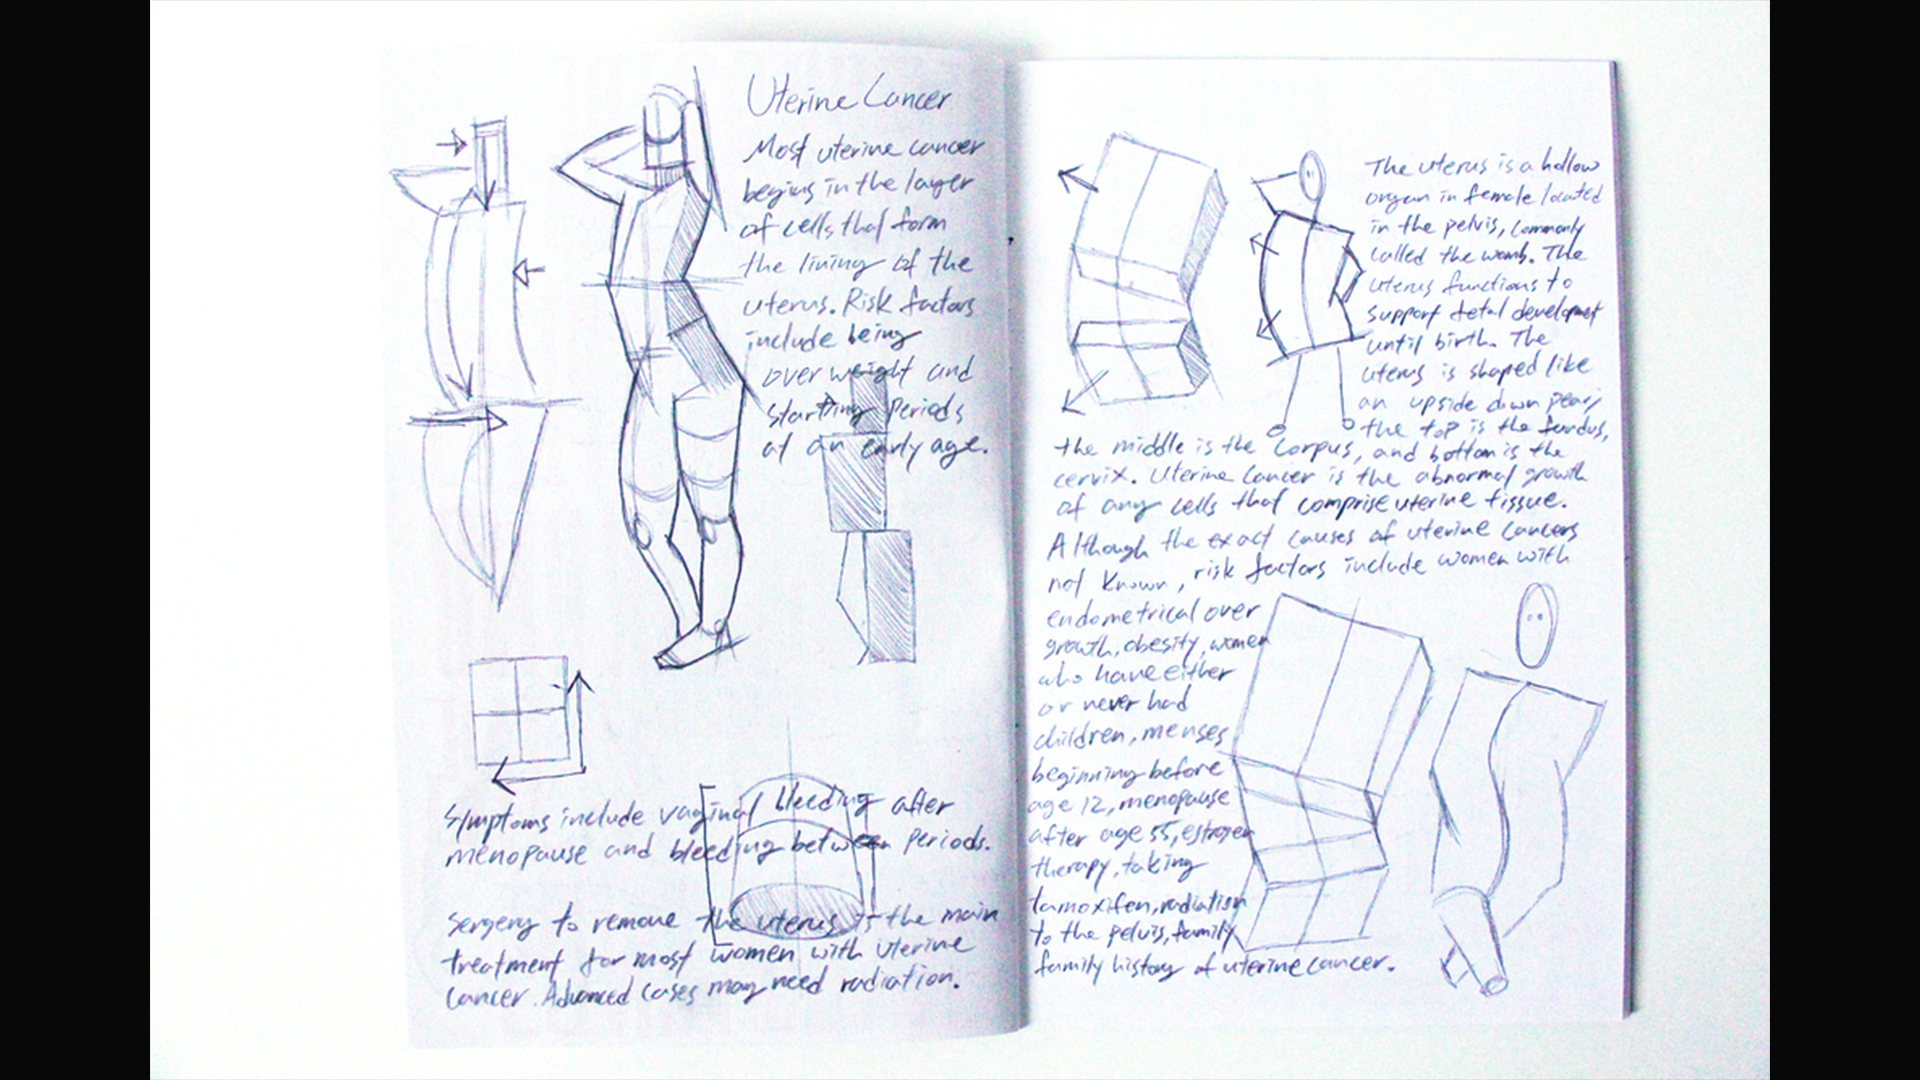 Uterine Cancer
Most uterine cancer
begins in the layer
of cells that form
the lining of the
uterus. Risk factors
include being
over weight and
starting periods
at an early age.
Symptoms include vaginal bleeding after
menopause and bleeding between periods.
Sergery to remove the uterus is the main
treatment for most women with uterine
cancer. Advanced cases may need radiation.
The uterus is a hollow
organ in female located
in the pelvis, commonly
called the womb. The
uterus functions to
support fetal development
until birth. The
uterus is shaped like
an upside down pear;
the top is the fundus,
the middle is the corpus, and bottom is the
cervix. Uterine cancer is the abnormal growth
of any cells that comprise uterine tissue.
Although the exact causes of uterine cancers
not known, risk factors include women with
endometrical over
growth, obesity, women
who have either
or never had
children, menses
beginning before
age 12, menopause
after age 55, estrogen
therapy, taking
tamoxifen, radiation
to the pelvis, family
family history of uterine cancer.